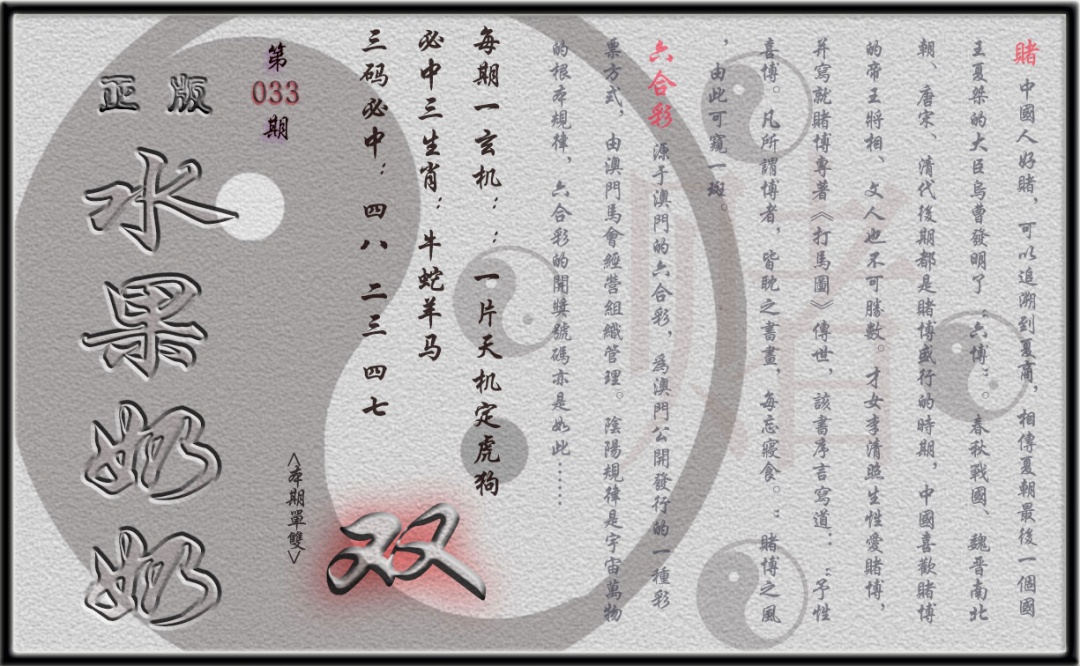 賭 中國人好賭，可以追溯到夏商，相傳夏朝最後一個國
王夏桀的大臣烏曹發明了“六博”。春秋戰國、魏晋南北
朝、唐宋、清代後期都是賭博盛行的時期，中國喜歡賭博
的帝王將相、文人也不可勝數。才女李清照生性愛賭博，
并寫就賭博專著《打馬圖》傳世，該書序言寫道：“予性
喜博。凡所謂博者，皆耽之書畫，每忘寢食。”賭博之風
，由此可窺一斑。
六合彩 源于澳門的六合彩，為澳門公開發行的一種彩
票方式，由澳門馬會經營組織管理。陰陽規律是宇宙萬物
的根本規律，六合彩的開獎號碼亦是如此……
每期一玄机：：一片天机定虎狗
必中三生肖：牛蛇羊马
三码必中：四八 二三 四七
双
<本期單雙>
第
033
期
正版
水果奶奶
赌